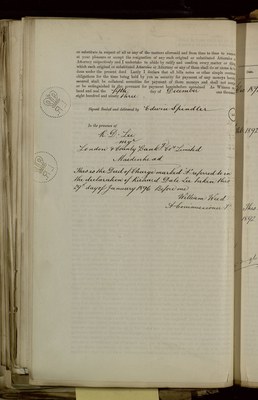 or substitute in respect of all or any of the matters aforesaid and from time to time to
at your pleasure or accept the resignation of any such original or substituted Attorney or
Attorneys respectively and I undertake to ratify and confirm every matter or thing
which such original or substituted Attorney or Attorneys or any of them shall do or cause to
done under the present deed. Lastly I declare that all bills notes or other simple
obligations for the time being held by you as security for payment of any moneys hereby
secured shall be collateral securities for payment of those moneys and shall not
or be extinguished by the covenant for payment hereinbefore contained. In Witness
hand and seal the Fifth day of December one thousand
eight hundred and ninety three.
Signed Sealed and delivered by Edwin Spindler
In the presence of
R. D. Lee
Mgr
London & County Bank Co Limited
Maidenhead
This is the Deed of Charge marked A referred to in
the declaration of Richard Dale Lee taken this
29th day of January 1896 Before me
William Weed
A Commissioner
1892